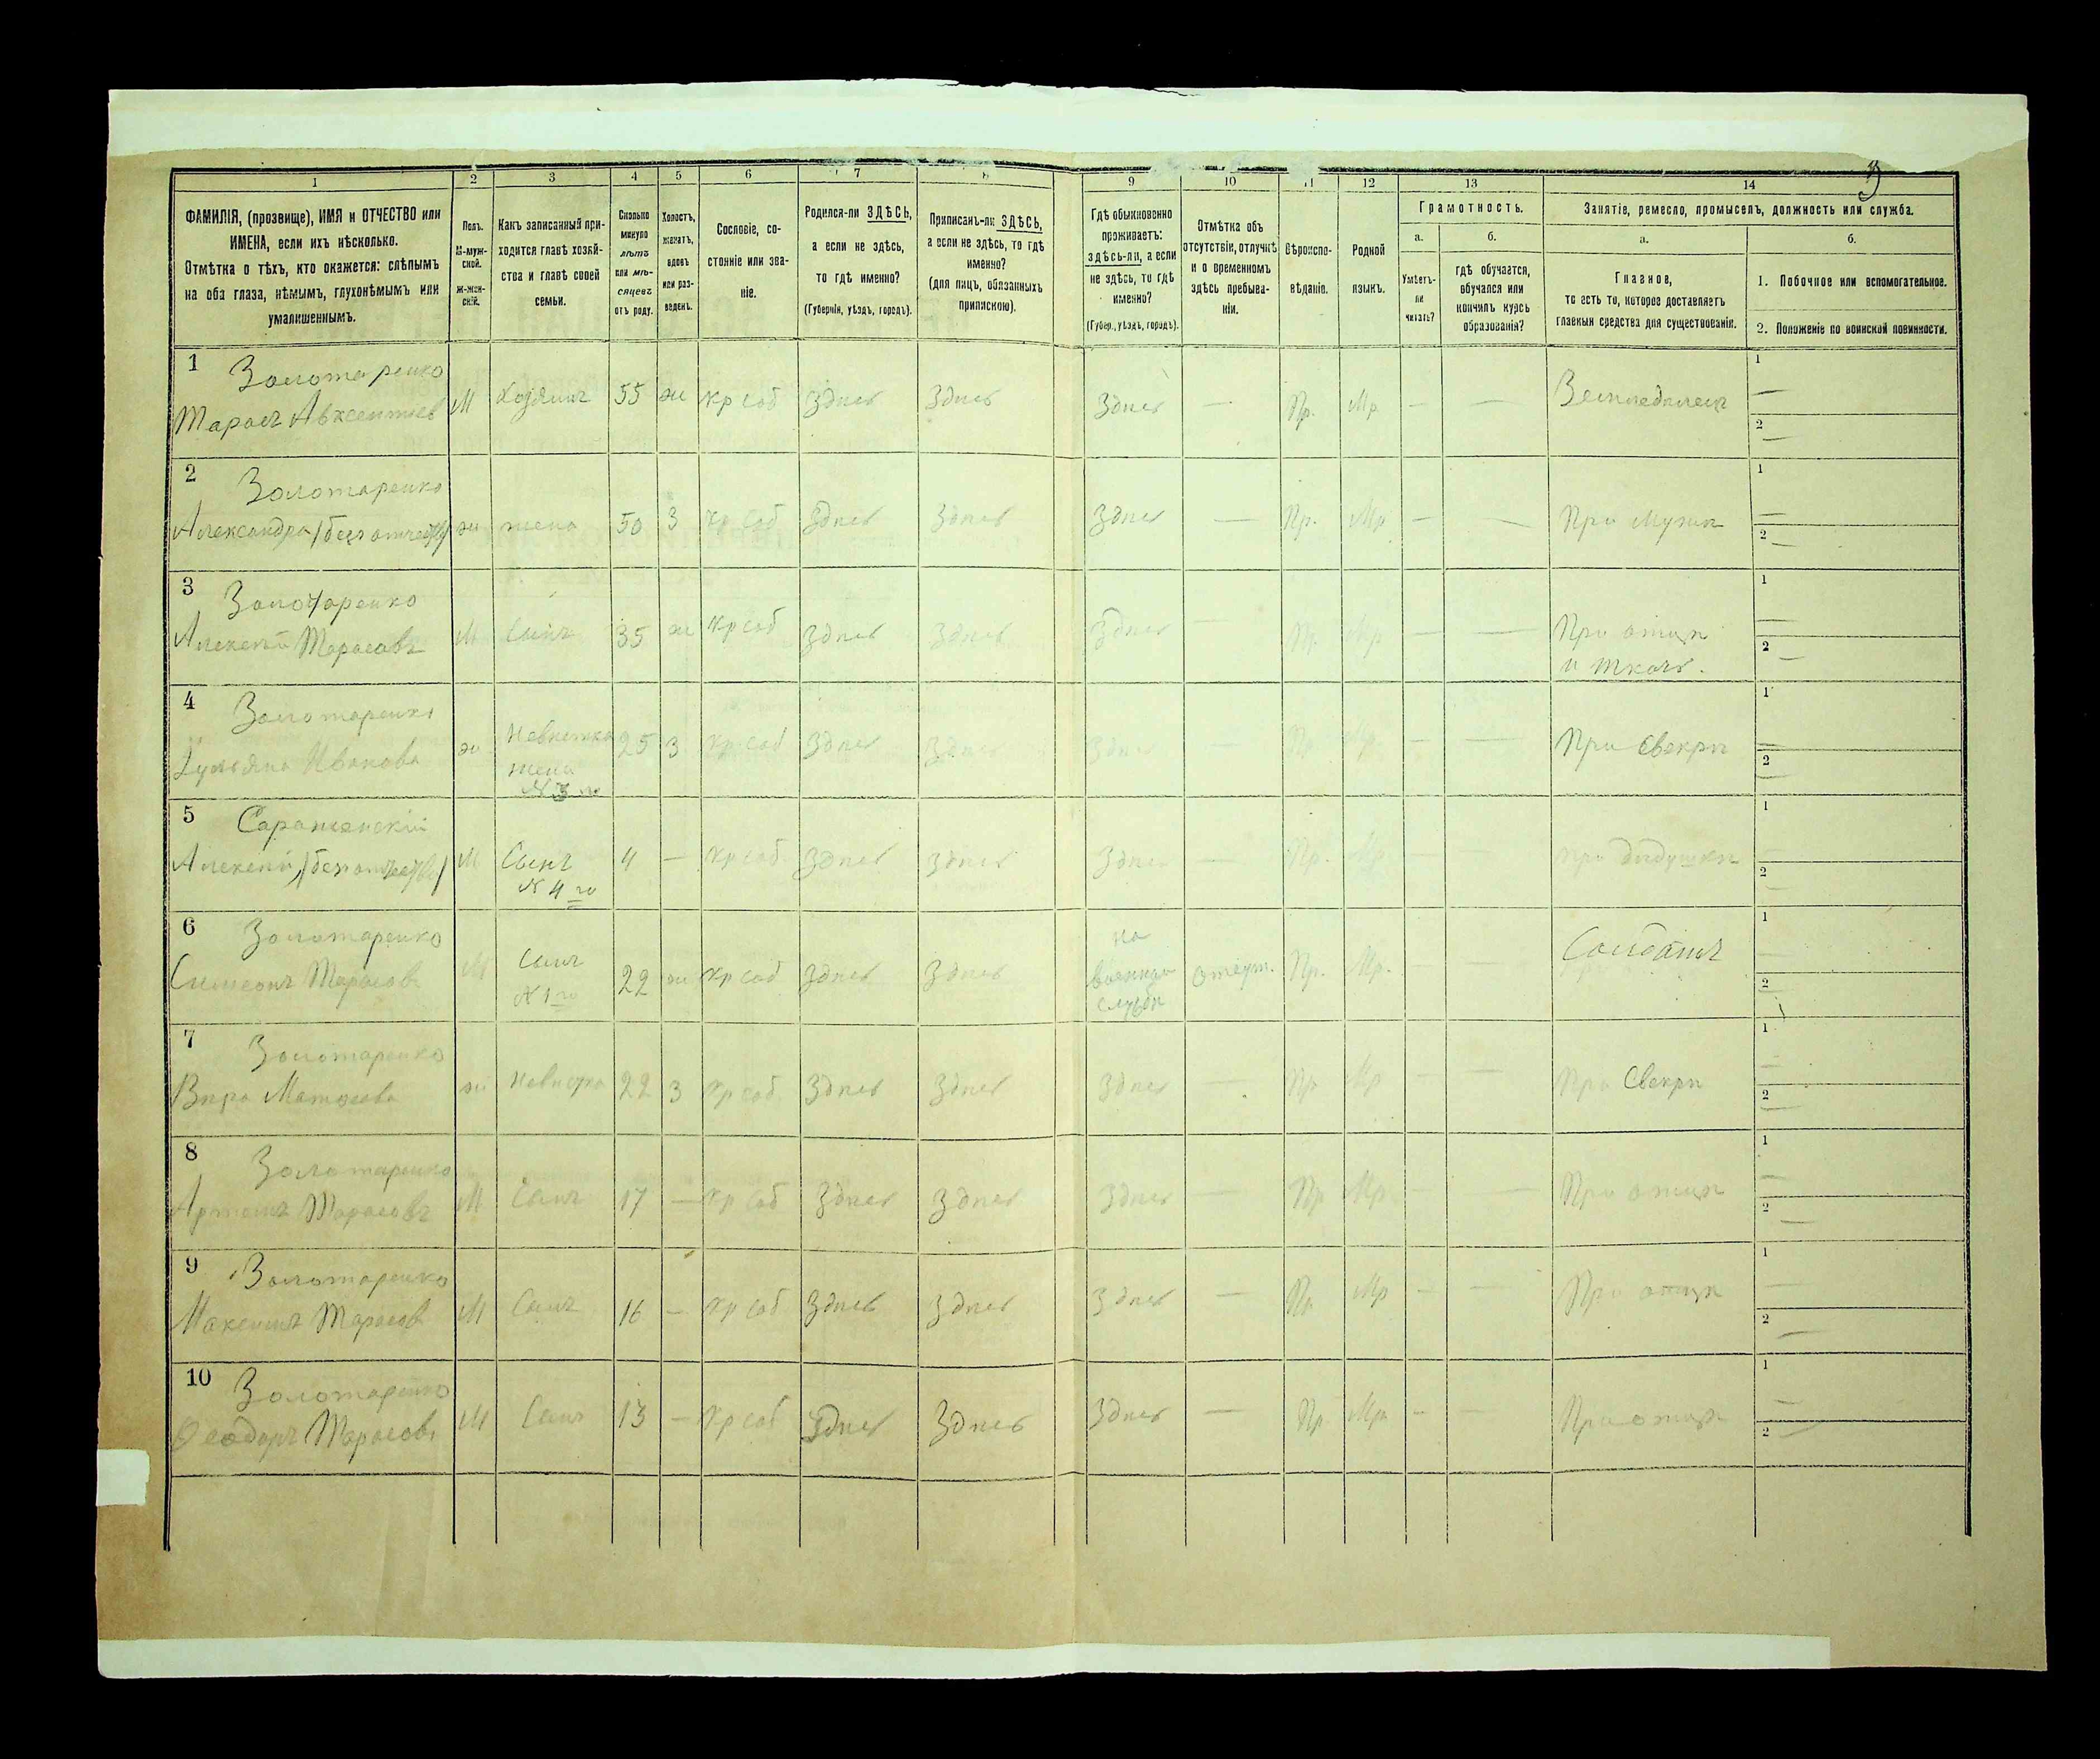 3
1 2 3 4 5 6 7 8 9 10 11 12 13 14
ФАМИЛІЯ, (прозвище), ИМЯ и ОТЧЕСТВО или
ИМЕНА, если ихъ нѣсколько.
Отмѣтка о тѣхъ, кто окажется: слѣпымъ
на оба глаза, нѣмымъ, глухонѣмымъ или
умалишеннымъ.
Полъ.
М-муж-
ской.
Ж-жен-
скій.
Какъ записанный при-
ходится главѣ хозяй-
ства и главѣ своей
семьи.
Сколько
минуло
лѣтъ
или мѣ-
сяцевъ
отъ роду.
Холостъ,
женатъ,
вдовъ
или раз-
веденъ.
Сословіе, со-
стояніе или зва-
ніе.
Родился-ли ЗДѢСЬ,
а если не здѣсь,
то гдѣ именно?
(Губернія, уѣздъ, городъ).
Приписанъ-ли ЗДѢСЬ,
а если не здѣсь, то гдѣ
именно?
(для лицъ, обязанныхъ
припискою).
Гдѣ обыкновенно
проживаетъ:
здѣсь-ли, а если
не здѣсь, то гдѣ
именно?
(Губер., уѣздъ, городъ).
Отмѣтка объ
отсутствіи, отлучкѣ
и о временномъ
здѣсь пребыва-
ніи.
Вѣроиспо-
вѣданіе.
Родной
языкъ.
Грамотность.
а.
Умѣетъ-
ли
читать?
б.
гдѣ обучается,
обучался или
кончилъ курсъ
образованія?
Занятіе, ремесло, промыселъ, должность или служба.
а.
Главное,
то есть то, которое доставляетъ
главныя средства для существованія.
б.
1. Побочное или вспомогательное.
2. Положеніе по воинской повинности.
1 Золотаренко
Тарасъ Авксентіев М Хозяинъ 55 ж кр соб Здѣсь Здѣсь Здѣсь — Пр. Мр — — Земледѣлецъ 1 — 2 —
2 Золотаренко
Александра (безъ отчества) ж жена 50 З кр соб Здѣсь Здѣсь Здѣсь — Пр. Мр — — При мужѣ 1 — 2 —
3 Золотаренко
Алексѣй Тарасовъ М Сынъ 35 ж кр соб Здѣсь Здѣсь Здѣсь — Пр. Мр — — При отцѣ
и ткачъ. 1 — 2 —
4 Золотаренко
Ульяна Иванова ж Невѣстка
жена
№ 3 го 25 З кр соб Здѣсь Здѣсь Здѣсь — Пр Мр — — При свекрѣ 1 — 2 —
5
Алексѣй (безъ отчества) М Сынъ
№ 4 го 4 — кр соб Здѣсь Здѣсь Здѣсь — Пр. Мр — — при дѣдушкѣ 1 — 2 —
6 Золотаренко
Симеонъ Тарасов М Сынъ
№ 1 го 22 ж кр соб Здѣсь Здѣсь на
военной
службѣ отсут. Пр. Мр. — Солдатъ 1 — 2
7 Золотаренко
Вѣра ж Невѣстка 22 З кр соб Здѣсь Здѣсь Здѣсь — Пр Мр — — При Свекрѣ 1 — 2 —
8 Золотаренко
Артемъ Тарасовъ М Сынъ 17 — кр соб Здѣсь Здѣсь Здѣсь — Пр Мр — — При отцѣ 1 — 2 —
9 Золотаренко
Максимъ Тарасов М Сынъ 16 — кр соб Здѣсь Здѣсь Здѣсь — Пр Мр — — При отцѣ 1 — 2 —
10 Золотаренко
Ѳеодоръ Тарасовъ М Сынъ 13 — кр соб Здѣсь Здѣсь Здѣсь — Пр Мр — — При отцѣ 1 — 2 —